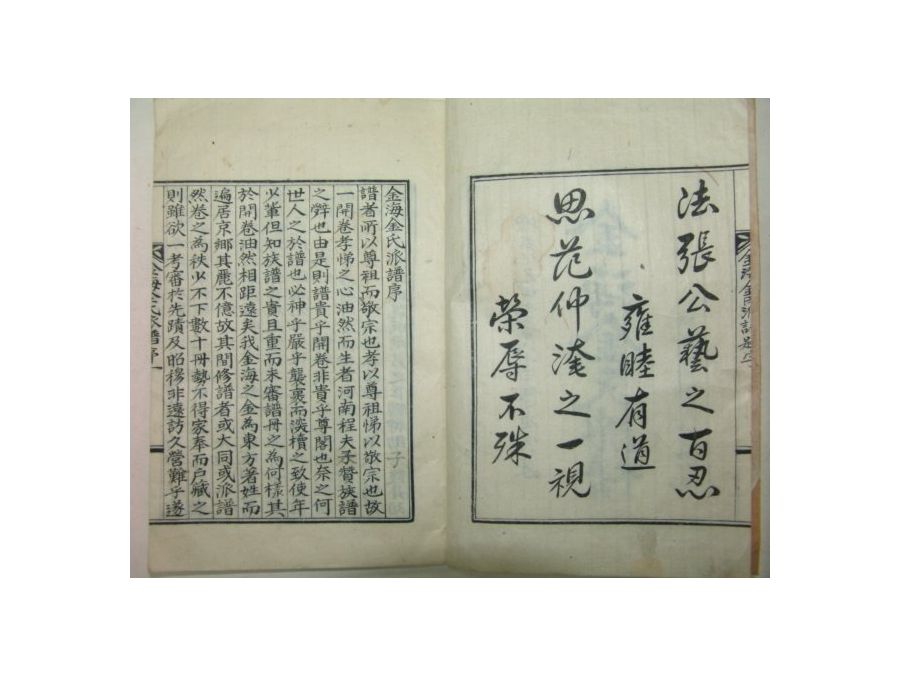 法張公藝之百忍
雍睦有道
思范仲淹之一視
榮辱不殊
金海金氏派譜序
譜者所以尊祖而敬宗也孝以尊祖悌以敬宗也故
一開卷孝悌之心油然而生者河南程夫子贊族譜
之辭也由是則譜貴乎開卷非貴乎尊閣也奈之何
世人之於譜也必神乎嚴乎襲裹而深櫝之致使年
少輩但知族譜之貴且重而未審譜冊之為何樣其
於開卷油然相距遠矣我金海之金為東方著姓而
遍居京鄉其麗不億故其間修譜者或大同或派譜
然卷之為秩少不下數十冊勢不得家奉而戶藏之
則雖欲一考審於先蹟及昭穆非遠訪久營難乎遂
金海金氏派譜序一